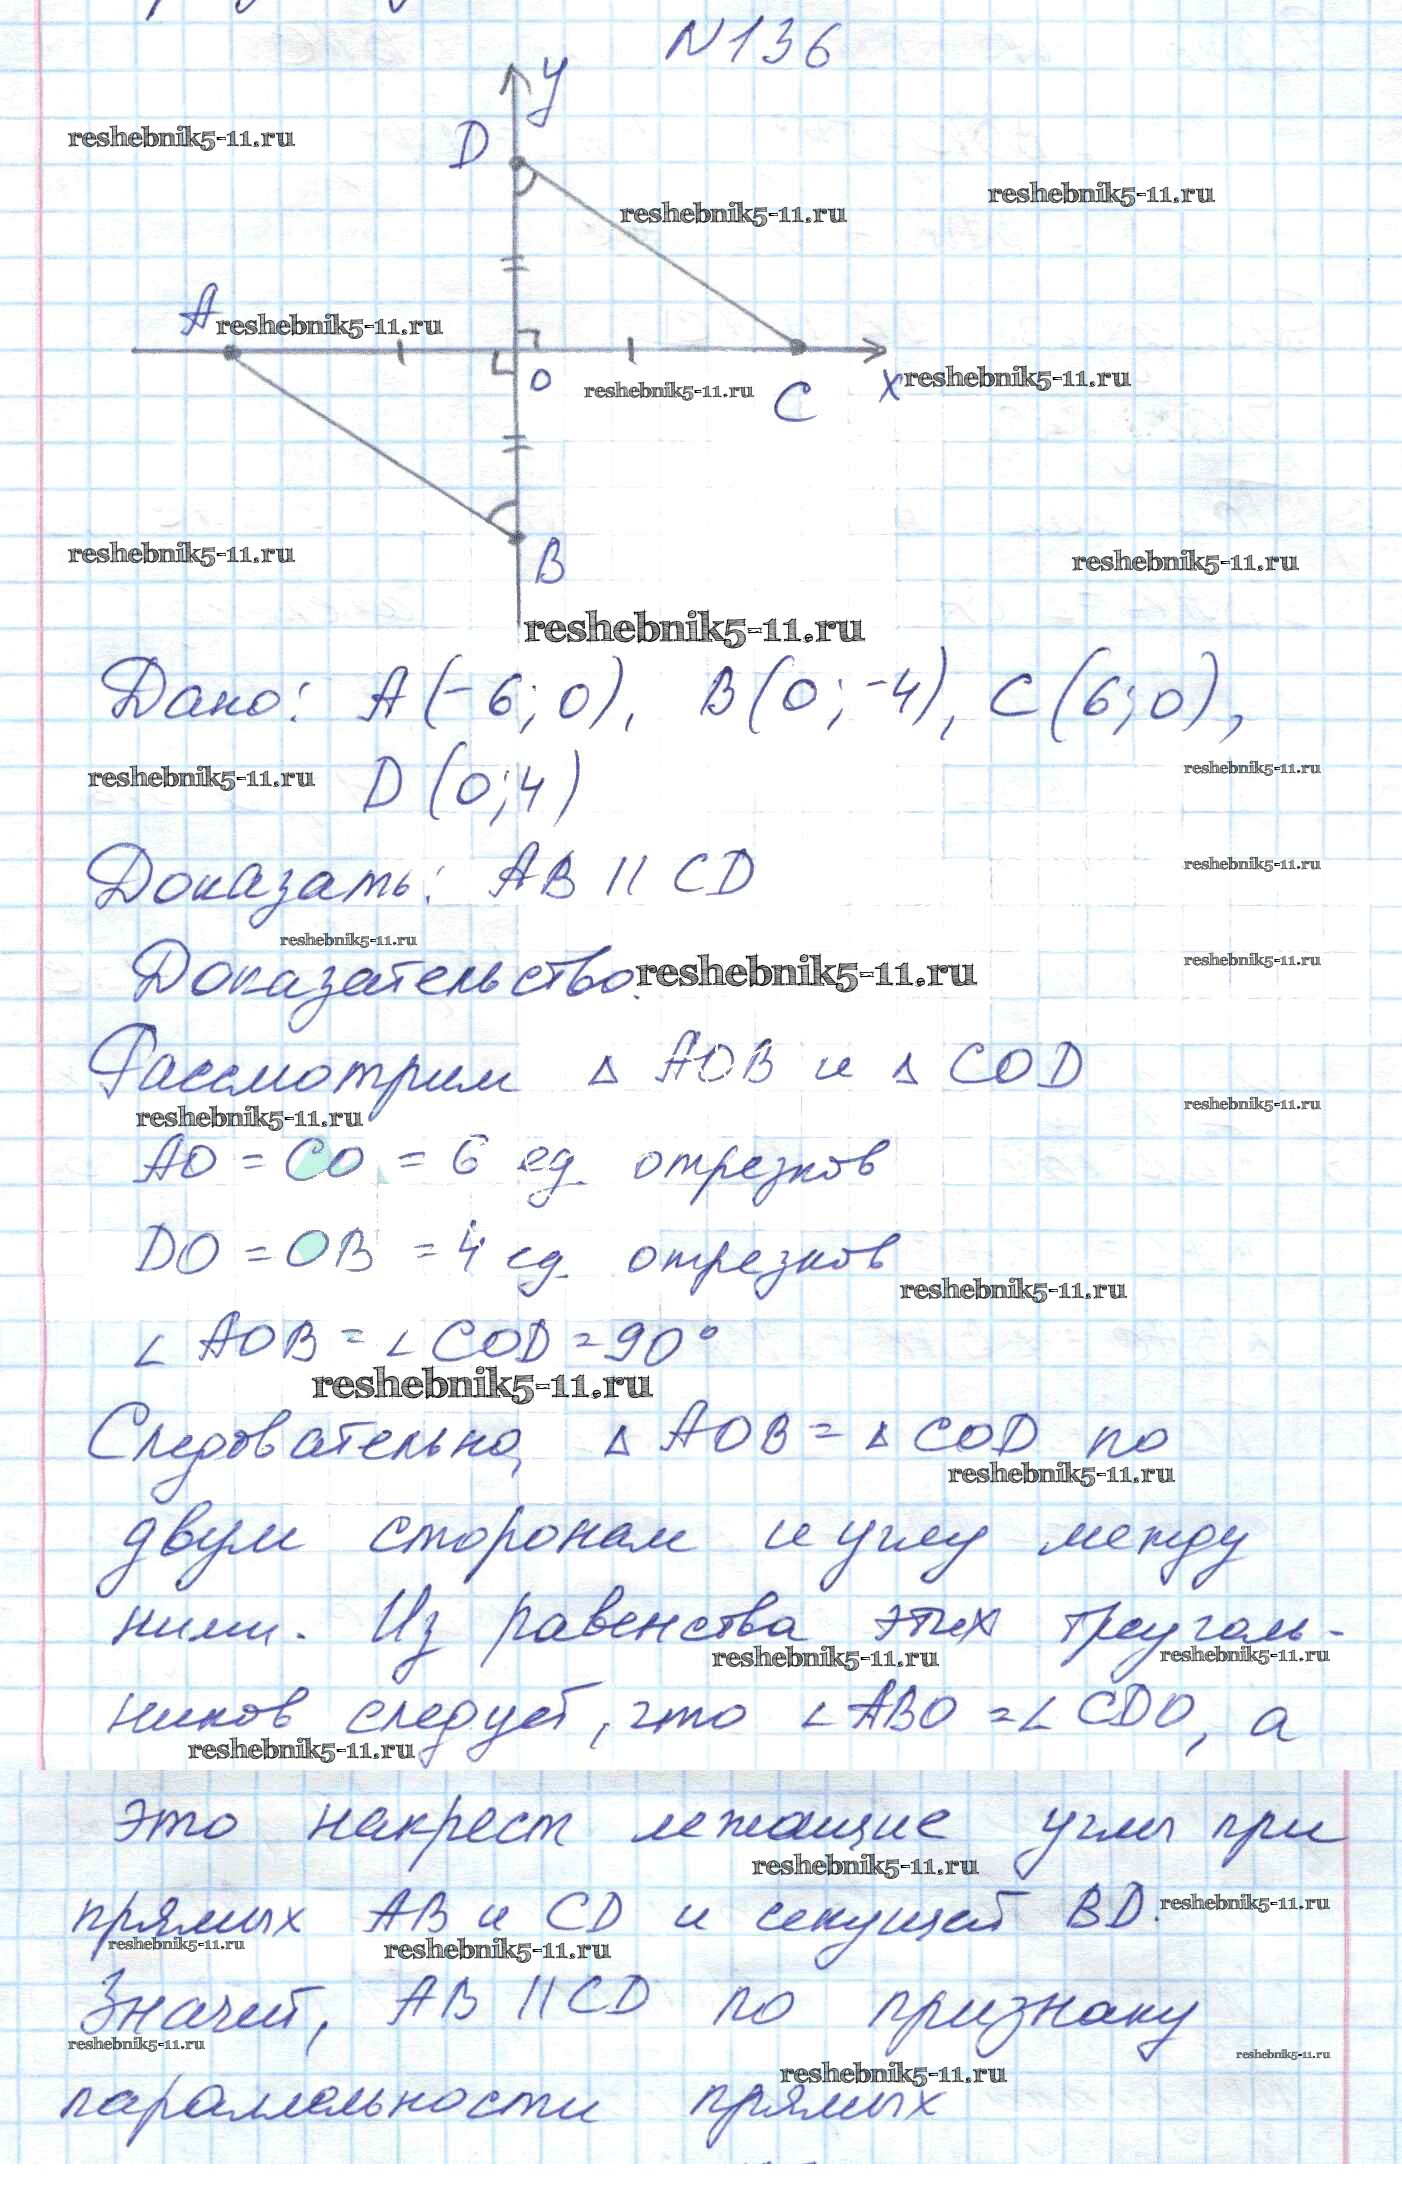 N136
y
D
reshebnik5-11.ru
reshebnik5-11.ru
reshebnik5-11.ru
A
reshebnik5-11.ru
O
reshebnik5-11.ru
C
x
reshebnik5-11.ru
reshebnik5-11.ru
B
reshebnik5-11.ru
reshebnik5-11.ru
Дано: A(-6;0), B(0;-4), C(6;0),
reshebnik5-11.ru
D(0;4)
reshebnik5-11.ru
Доказать: AB || CD
reshebnik5-11.ru
reshebnik5-11.ru
Доказательство.
reshebnik5-11.ru
reshebnik5-11.ru
Рассмотрим △ AOB и △ COD
reshebnik5-11.ru
reshebnik5-11.ru
AO = CO = 6 ед. отрезков
DO = OB = 4 ед. отрезков
reshebnik5-11.ru
∠ AOB = ∠ COD = 90°
reshebnik5-11.ru
Следовательно, △ AOB = △ COD по
reshebnik5-11.ru
двум сторонам и углу между
ними. Из равенства этих треуголь-
reshebnik5-11.ru
reshebnik5-11.ru
ников следует, что ∠ ABO = ∠ CDO, а
reshebnik5-11.ru
это накрест лежащие углы при
reshebnik5-11.ru
прямых AB и CD и секущей BD.
reshebnik5-11.ru
reshebnik5-11.ru
reshebnik5-11.ru
Значит, AB || CD по признаку
reshebnik5-11.ru
reshebnik5-11.ru
reshebnik5-11.ru
параллельности прямых